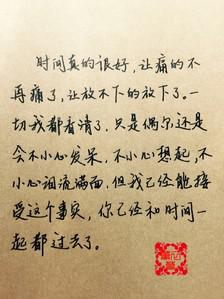 时间真的很好，让痛的不
再痛了，让放不下的放下了。一
切我都看清了，只是偶尔还是
会不小心发呆，不小心想起，不
小心泪流满面，但我已经能接
受这个事实，你已经和时间一
起都过去了。